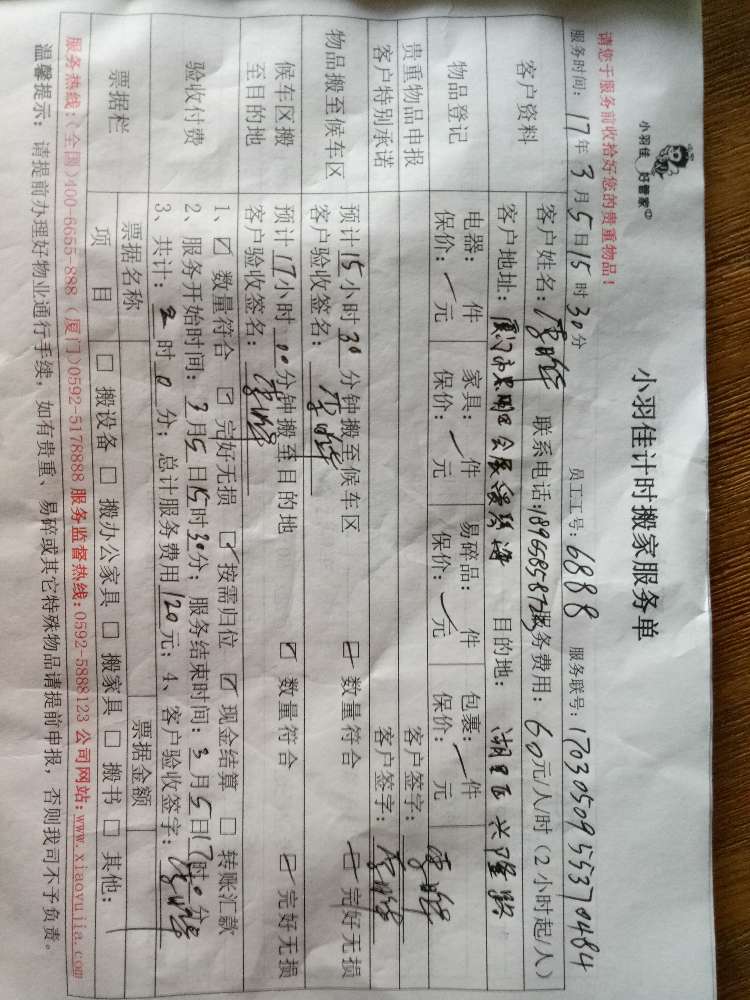 小羽佳 好管家
小羽佳计时搬家服务单
请您于服务前收拾好您的贵重物品!
服务时间: 17年3月5日15时30分 员工工号: 6888 服务联号: 1703050955370484
客户资料 客户姓名: 联系电话: 服务费用: 60元/人/时(2小时起/人)
客户地址: 目的地: 湖里区兴隆路
物品登记 电器: 件 家具: 件 易碎品: 件 包裹: 件
保价: 元 保价: 元 保价: 元 保价: 元
贵重物品申报 客户签字:
客户特别承诺 客户签字:
物品搬至候车区 预计15小时30分钟搬至候车区 ☑ 数量符合 ☑ 完好无损
客户验收签名:
候车区搬至目的地 预计17小时00分钟搬至目的地 ☑ 数量符合 ☑ 完好无损
客户验收签名:
验收付费 1、☑ 数量符合 ☑ 完好无损 ☑ 按需归位 ☑ 现金结算 ☐ 转账汇款
2、服务开始时间: 3月5日15时30分; 服务结束时间: 3月5日17时0分
3、共计: 2时0分; 总计服务费用120元; 4、客户验收签字:
票据栏 票据名称 票据金额
项目 ☐ 搬设备 ☐ 搬办公家具 ☐ 搬家具 ☐ 搬书 ☐ 其他:
服务热线:(全国)400-6655-888 (厦门)0592-5178888 服务监督热线:0592-5888123 公司网站:www.xiaoyujia.com
温馨提示: 请提前办理好物业通行手续, 如有贵重、易碎或其它特殊物品请提前申报, 否则我司不予负责。